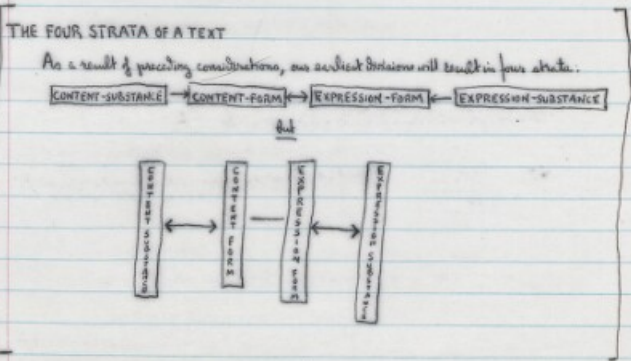 THE FOUR STRATA OF A TEXT
As a result of preceding considerations, our earliest divisions will result in four strata:
CONTENT-SUBSTANCE → CONTENT-FORM ↔ EXPRESSION-FORM ← EXPRESSION-SUBSTANCE
but
CONTENT SUBSTANCE ↔ CONTENT FORM — EXPRESSION FORM ↔ EXPRESSION SUBSTANCE